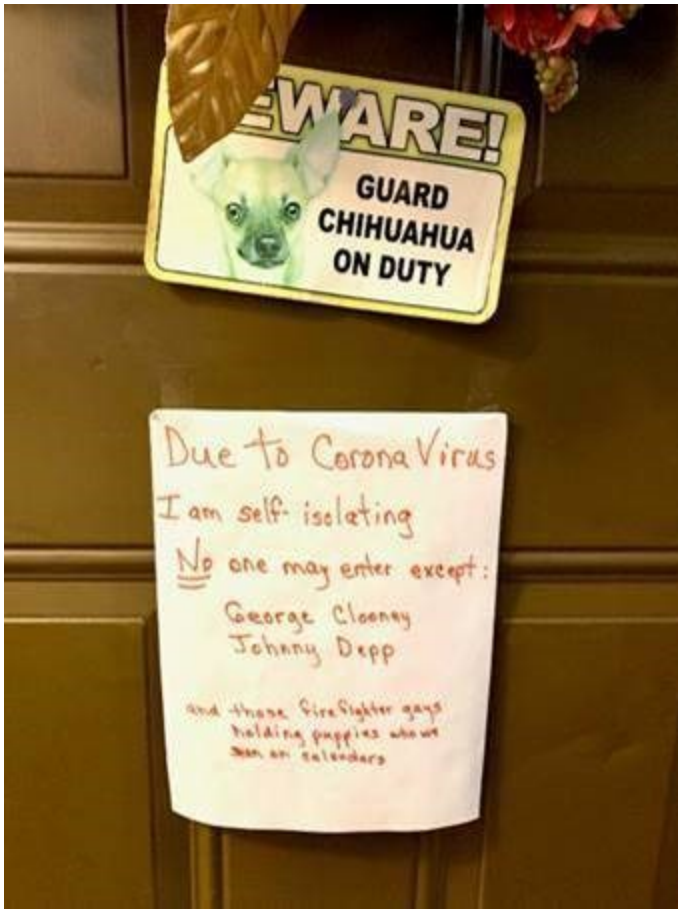 BEWARE!
GUARD
CHIHUAHUA
ON DUTY
Due to Corona Virus
I am self-isolating
No one may enter except:
George Clooney
Johnny Depp
and those firefighter guys
holding puppies
on calendars